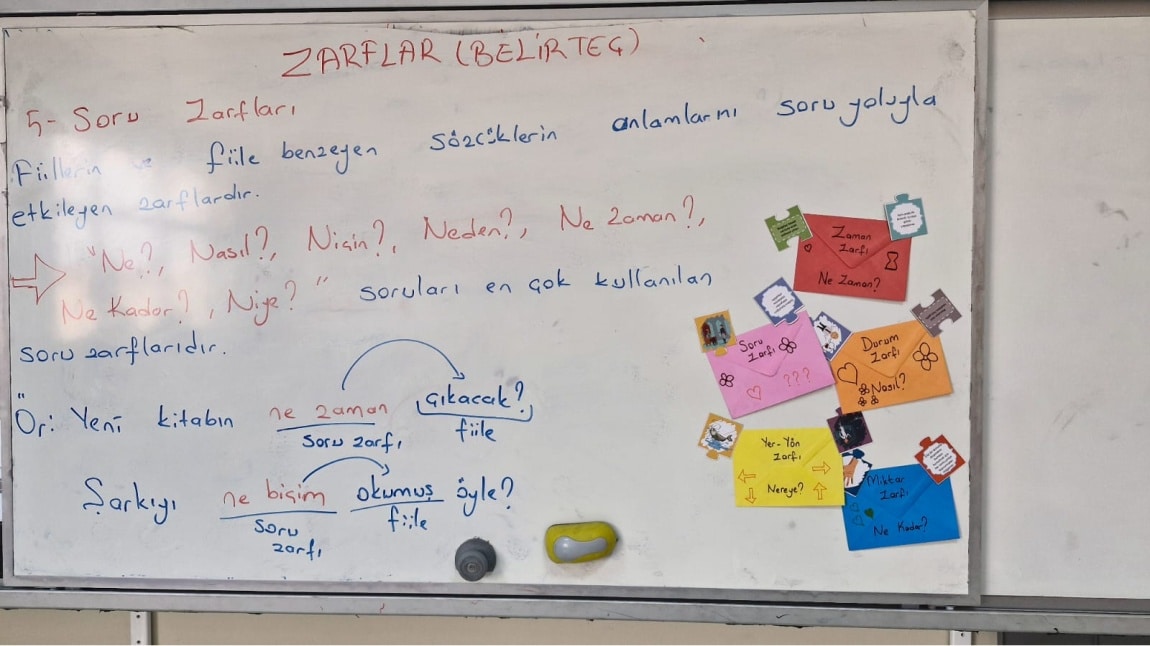 ZARFLAR (BELİRTEÇ)
5- Soru Zarfları
Fiillerin ve fiile benzeyen sözcüklerin anlamlarını soru yoluyla
etkileyen zarflardır.
"Ne?, Nasıl?, Niçin?, Neden?, Ne Zaman?,
Ne Kadar?, Niye?" soruları en çok kullanılan
soru zarflarıdır.
Ör: Yeni kitabın ne zaman çıkacak?
soru zarfı fiile
Şarkıyı ne biçim okumuş öyle?
soru fiile
zarfı
Zaman
Zarfı
Ne Zaman?
Soru
Zarfı
???
Durum
Zarfı
Nasıl?
Yer-Yön
Zarfı
Nereye?
Miktar
Zarfı
Ne Kadar?